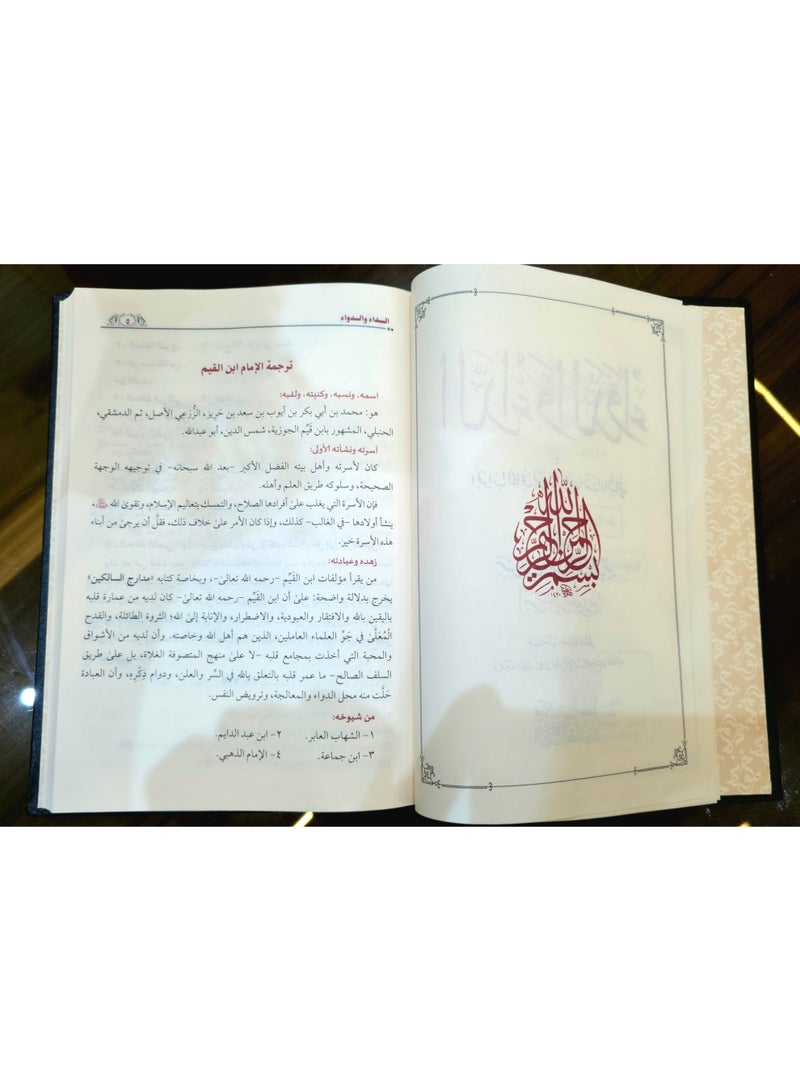 بسم الله الرحمن الرحيم
الداء والدواء
٥
ترجمة الإمام ابن القيم
اسمه، ونسبه، وكنيته، ولقبه:
هو: محمد بن أبي بكر بن أيوب بن سعد بن حريز، الزُّرَعي الأصل، ثم الدمشقي،
الحنبلي، المشهور بابن قَيِّم الجوزية، شمس الدين، أبو عبدالله.
أسرته ونشأته الأولى:
كان لأسرته وأهل بيته الفضل الأكبر -بعد الله سبحانه- في توجيهه الوجهة
الصحيحة، وسلوكه طريق العلم وأهله.
فإن الأسرة التي يغلب على أفرادها الصلاح، والتمسك بتعاليم الإسلام، وتقوى الله ،
ينشأ أولادها -في الغالب- كذلك، وإذا كان الأمر على خلاف ذلك، فقلَّ أن يرجى من أبناء
هذه الأسرة خير.
زهده وعبادته:
من يقرأ مؤلفات ابن القيِّم -رحمه الله تعالى-، وبخاصة كتابه «مدارج السالكين»
يخرج بدلالة واضحة: على أن ابن القيِّم -رحمه الله تعالى- كان لديه من عمارة قلبه
باليقين بالله والافتقار والعبودية، والاضطرار، والإنابة إلى الله؛ الثروة الطائلة، والقدح
الْمُعَلَّىٰ في جَوِّ العلماء العاملين، الذين هم أهل الله وخاصته. وأن لديه من الأشواق
والمحبة التي أخذت بمجامع قلبه -لا على منهج المتصوفة الغلاة، بل على طريق
السلف الصالح- ما عمر قلبه بالتعلق بالله في السِّر والعلن، ودوام ذِكْرِه، وأن العبادة
حَلَّت منه محل الدواء والمعالجة، وترويض النفس.
من شيوخه:
١- الشهاب العابر. ٢- ابن عبد الدايم.
٣- ابن جماعة. ٤- الإمام الذهبي.